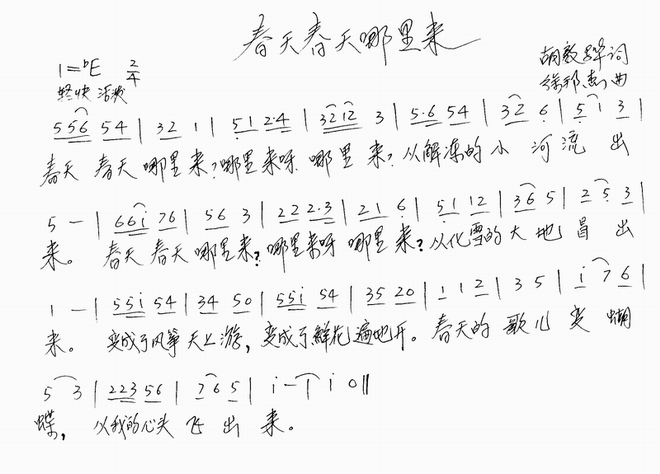 春天春天哪里来
1=ᵇE 2/4
胡敦骅词
稍快 活泼
徐邦杰曲
556 54 | 32 1 | 51 2·4 | 3212 3 | 5·6 54 | 32 6 | 5 1 3 |
春天 春天 哪里来?哪里来呀 哪里 来?从解冻的小 河流 出
5 — | 66i 76 | 56 3 | 222·3 | 21 6 | 51 12 | 36 5 | 2 5 3 |
来。 春天 春天 哪里来?哪里来呀 哪里来?从化雪的大 地 冒 出
1 — | 55i 54 | 34 50 | 55i 54 | 35 20 | 1 1 2 | 3 5 | i 7 6 |
来。 变成了风筝天上游,变成了鲜花遍地开。春天的 歌儿 变 蝴
5 3 | 223 56 | 7 6 5 | i — | i 0 ‖
蝶, 从我的心头 飞 出 来。